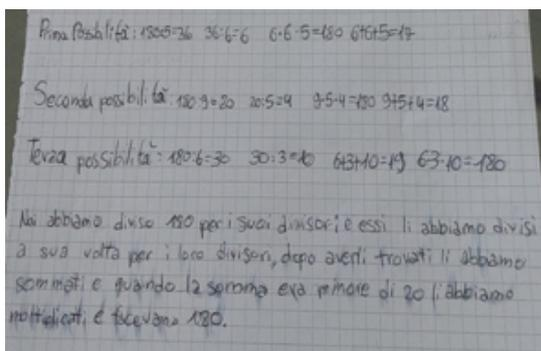 Prima Possibilità: 180:5=36 36:6=6 6·6·5=180 6+6+5=17
Seconda possibilità: 180:9=20 20:5=4 9·5·4=180 9+5+4=18
Terza possibilità: 180:6=30 30:3=10 6+3+10=19 6·3·10=180
Noi abbiamo diviso 180 per i suoi divisori e essi li abbiamo divisi
a sua volta per i loro divisori, dopo averli trovati li abbiamo
sommati e quando la somma era minore di 20 li abbiamo
moltiplicati e facevano 180.